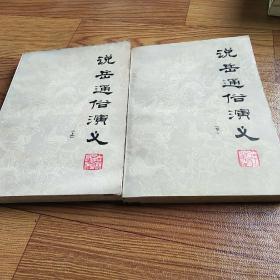 说岳通俗演义
(上)
说岳通俗演义